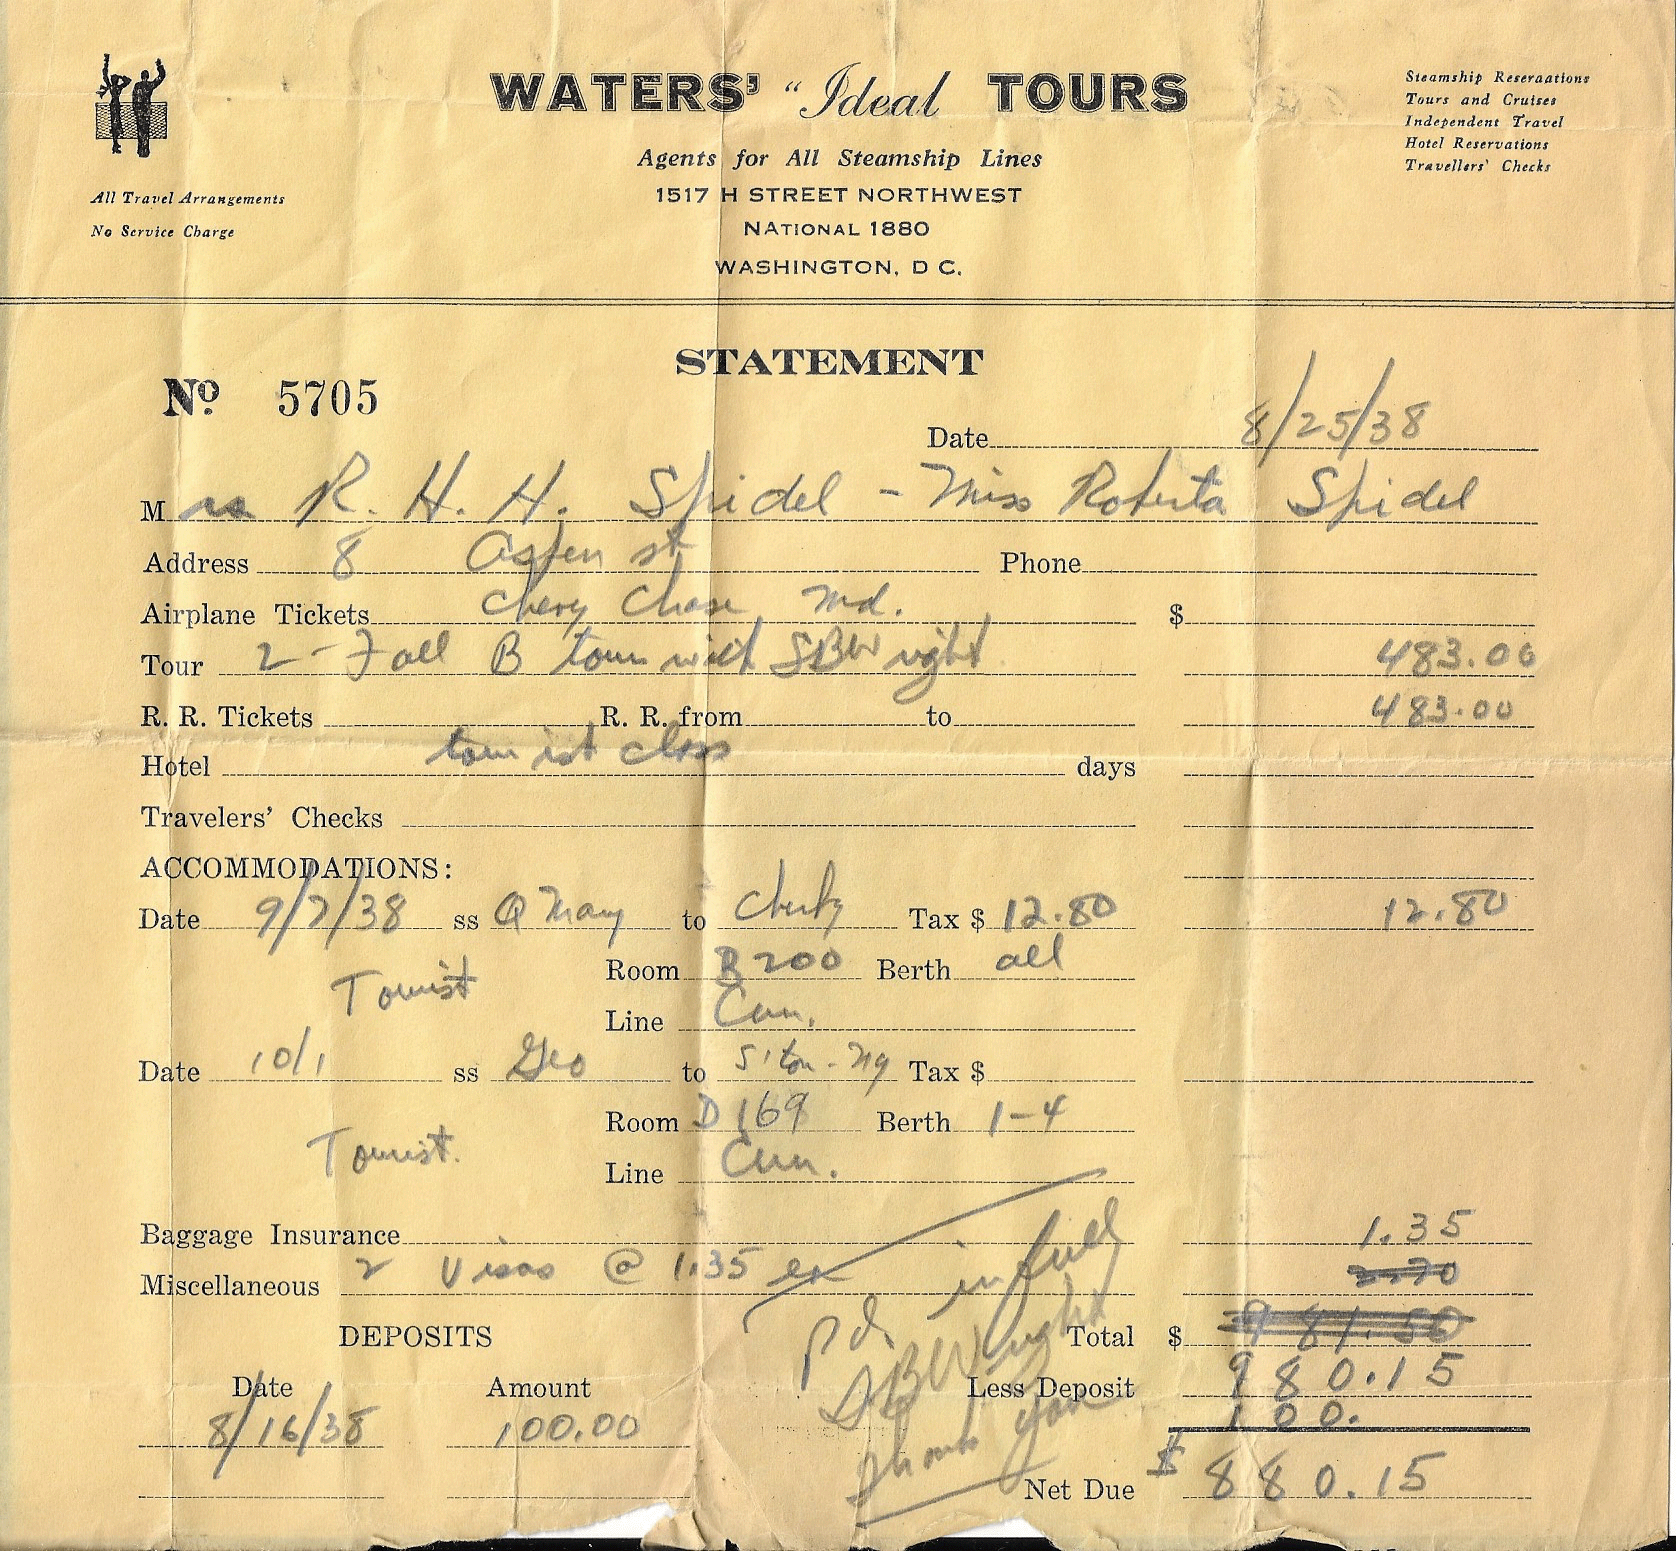 WATERS' "Ideal TOURS
Agents for All Steamship Lines
1517 H STREET NORTHWEST
NATIONAL 1880
WASHINGTON, D C.
All Travel Arrangements
No Service Charge
Steamship Reseraations
Tours and Cruises
Independent Travel
Hotel Reservations
Travellers' Checks
STATEMENT
No. 5705
Date 8/25/38
M rs R. H. H. Spidel - Miss Roberta Spidel
Address 8 Aspen st Phone
Airplane Tickets Chevy Chase, Md. $
Tour 2 - Fall B tour with SBWright 483.00
R. R. Tickets R. R. from to 483.00
Hotel tourist class days
Travelers' Checks
ACCOMMODATIONS:
Date 9/7/38 ss Q Mary to Cherbg Tax $ 12.80 12.80
Room B 200 Berth all
Tourist
Line Cun.
Date 10/1 ss Geo to S'ton - Ny Tax $
Room D 169 Berth 1-4
Tourist.
Line Cun.
Baggage Insurance 1.35
Miscellaneous 2 Visas @ 1.35 ea 2.70
pd. in full
SBWright
Thank you
DEPOSITS Total $ 981.50
980.15
Date Amount Less Deposit
8/16/38 100.00 100.
Net Due $ 880.15